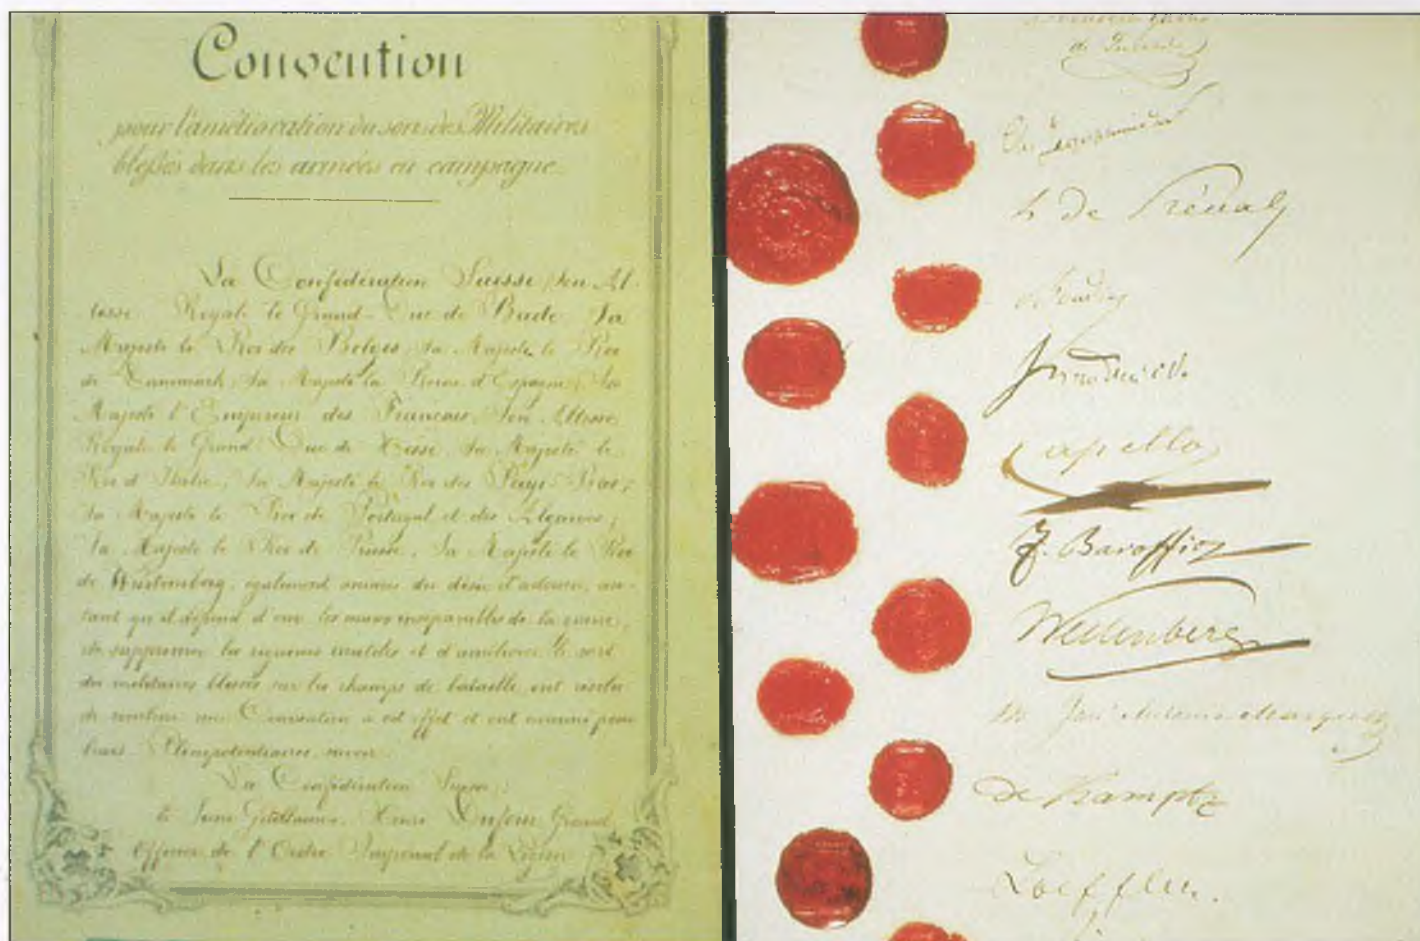 Convention
pour l'amélioration du sort des Militaires
blessés dans les armées en campagne.
La Confédération Suisse, Son Al-
tesse Royale le Grand-Duc de Bade, Sa
Majesté le Roi des Belges, Sa Majesté le Roi
de Danemark, Sa Majesté la Reine d'Espagne, Sa
Majesté l'Empereur des Français, Son Altesse
Royale le Grand-Duc de Hesse, Sa Majesté le
Roi d'Italie, Sa Majesté le Roi des Pays-Bas,
Sa Majesté le Roi de Portugal et des Algarves,
Sa Majesté le Roi de Prusse, Sa Majesté le Roi
de Würtemberg, également animés du désir d'adoucir, au-
tant qu'il dépend d'eux, les maux inséparables de la guerre,
de supprimer les rigueurs inutiles et d'améliorer le sort
des militaires blessés sur les champs de bataille, ont résolu
de conclure une Convention à cet effet et ont nommé pour
leurs Plénipotentiaires, savoir:
La Confédération Suisse:
le Sieur Guillaume Henri Dufour Grand
Officier de l'Ordre Impérial de la Légion
de Préval
Capello
F. Baroffio
Westenberg
José Antonio Marques
de Kamptz
Loeffler.